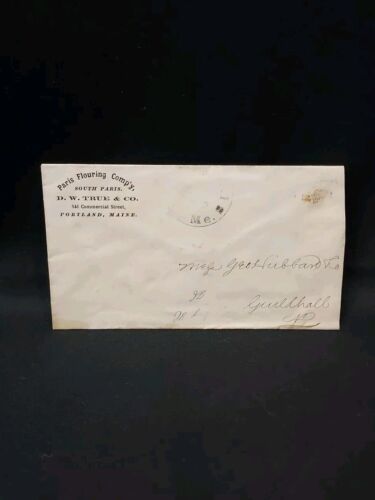 Paris Flouring Comp'y,
SOUTH PARIS.
D. W. TRUE & CO.
141 Commercial Street,
PORTLAND, MAINE.
Me.
Geo Hubbard & Co
Guildhall
Vt